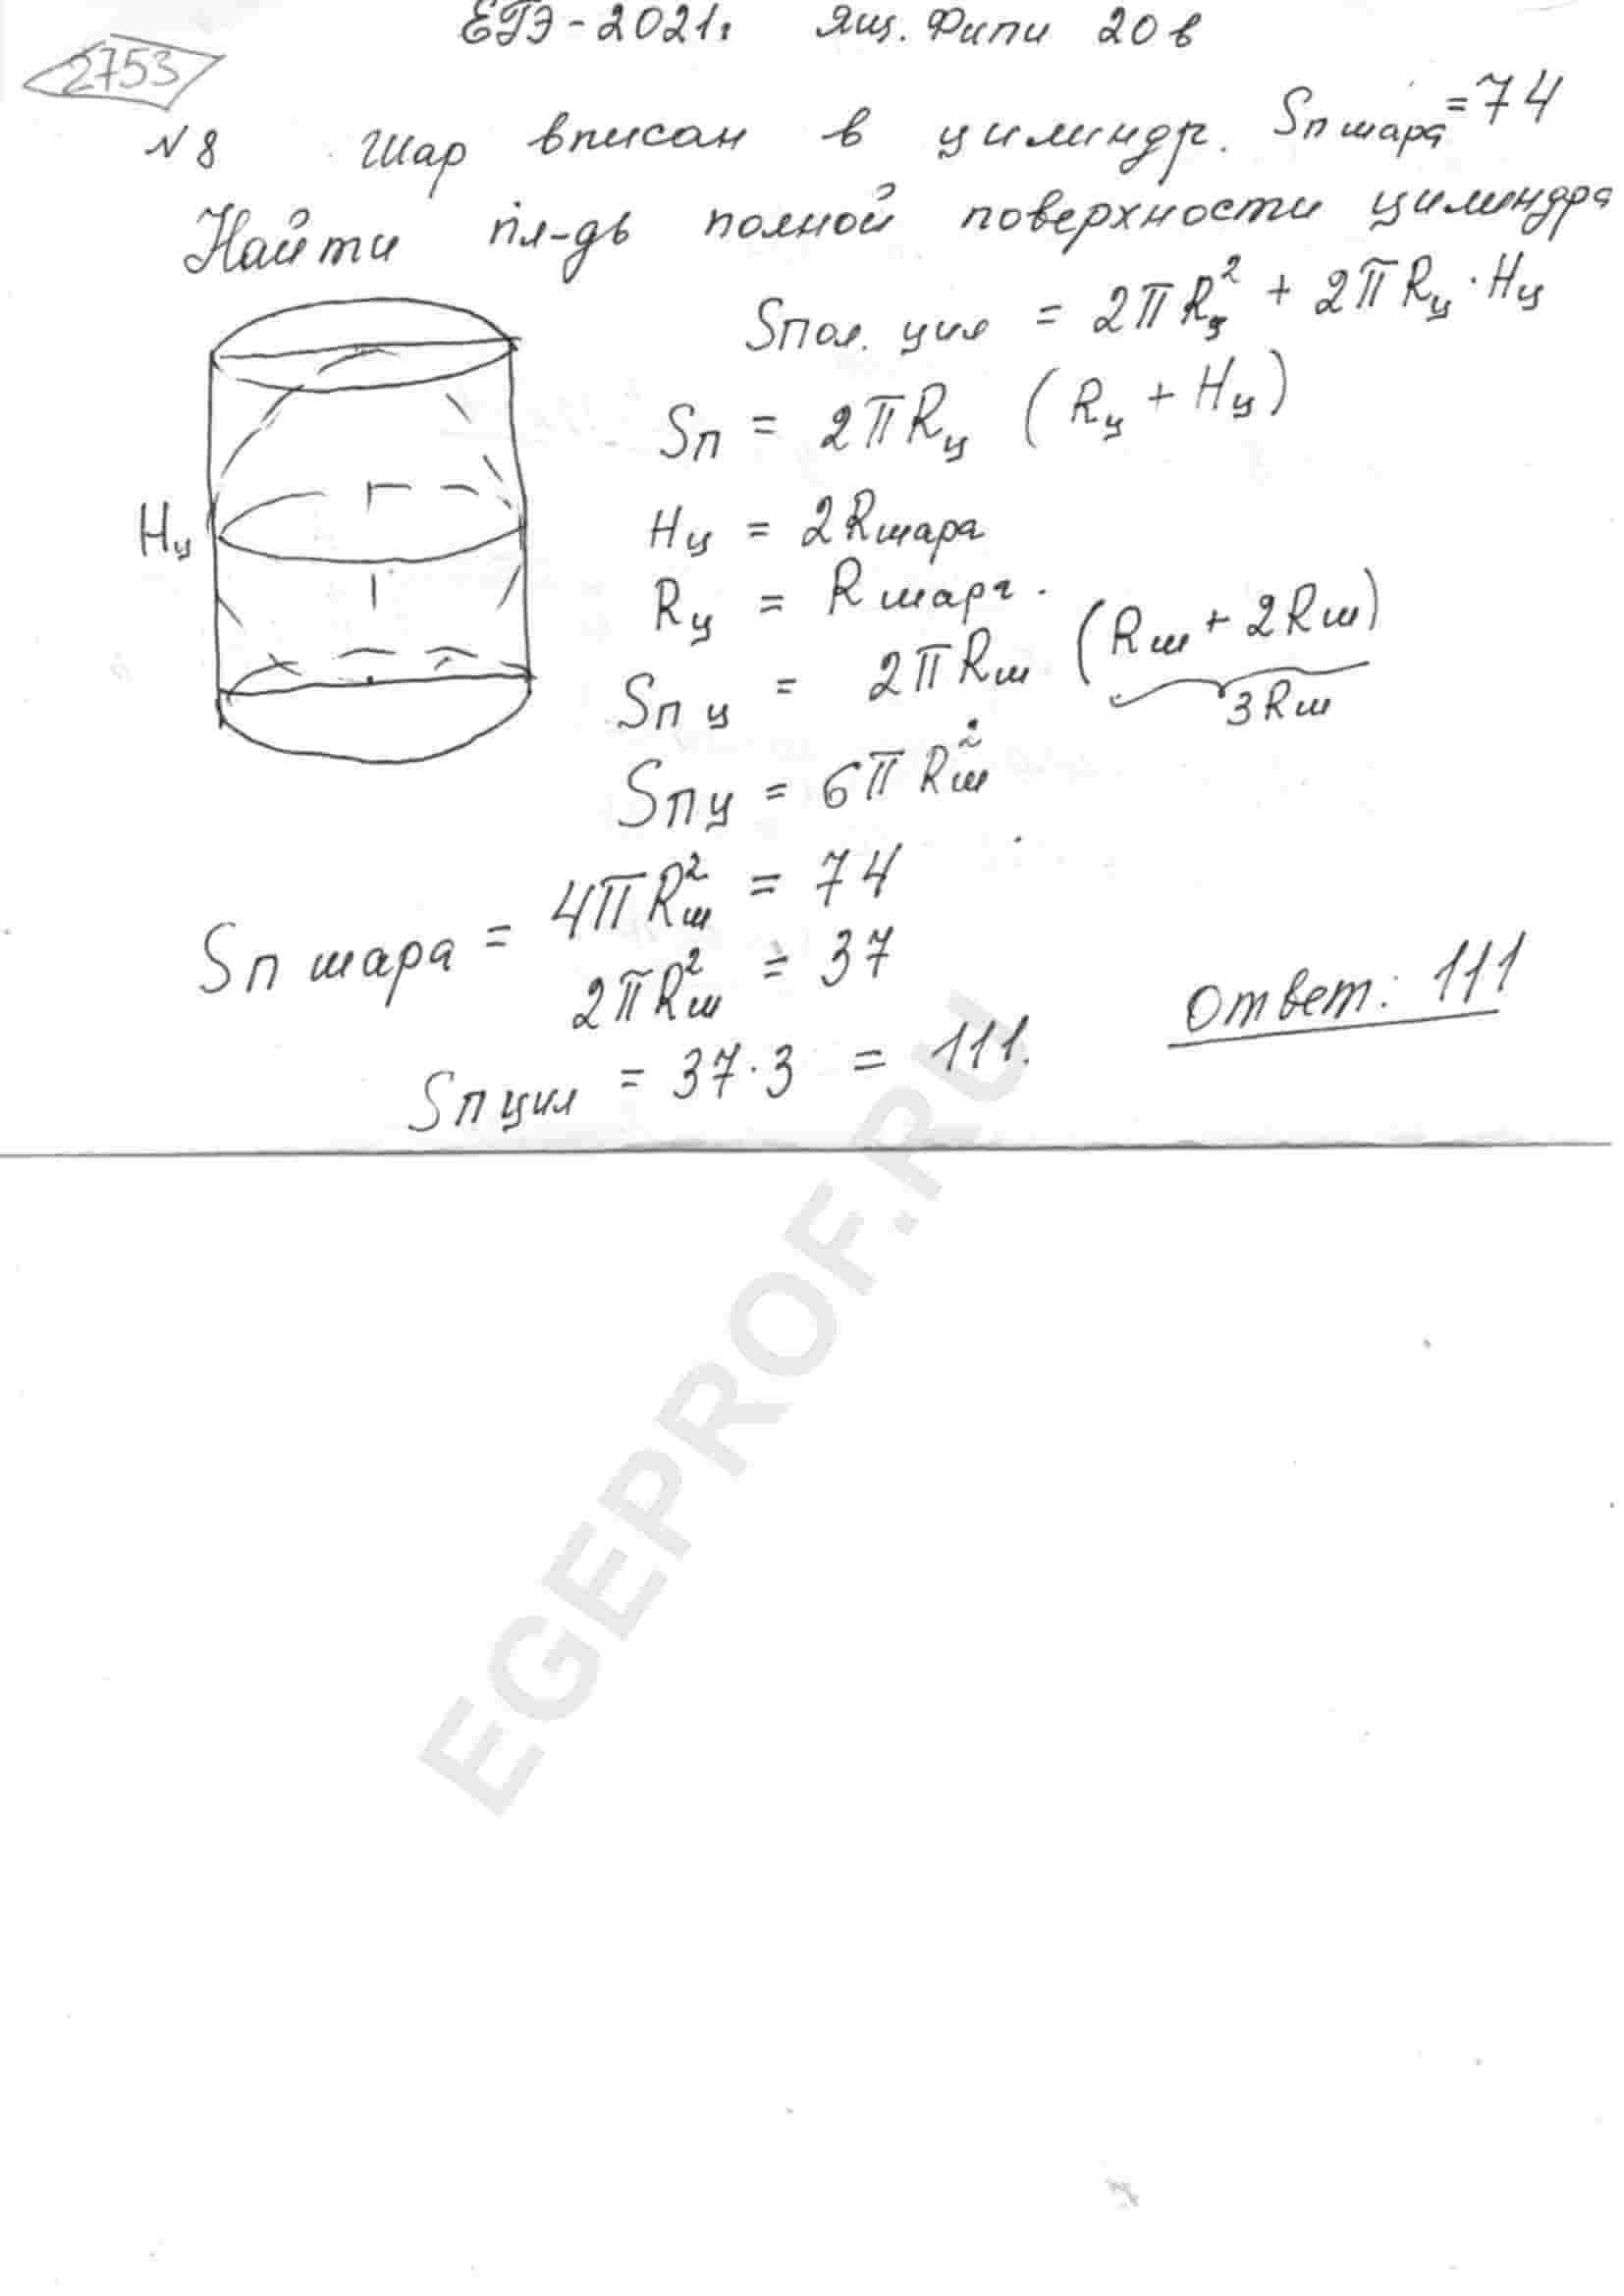 ЕГЭ-2021г Ящ. Фипи 20 в
2753
№8 Шар вписан в цилиндр. Sп шара = 74
Найти пл-дь полной поверхности цилиндра
Sпол. цил = 2πRц² + 2πRц · Hц
Sп = 2πRц (Rц + Hц)
Hц
Hц = 2Rшара
Rц = Rшара.
Sпц = 2πRш (Rш + 2Rш)
3Rш
Sпц = 6πRш²
Sп шара = 4πRш² = 74
2πRш² = 37
Ответ: 111
Sп цил = 37·3 = 111.
EGEPROF.RU